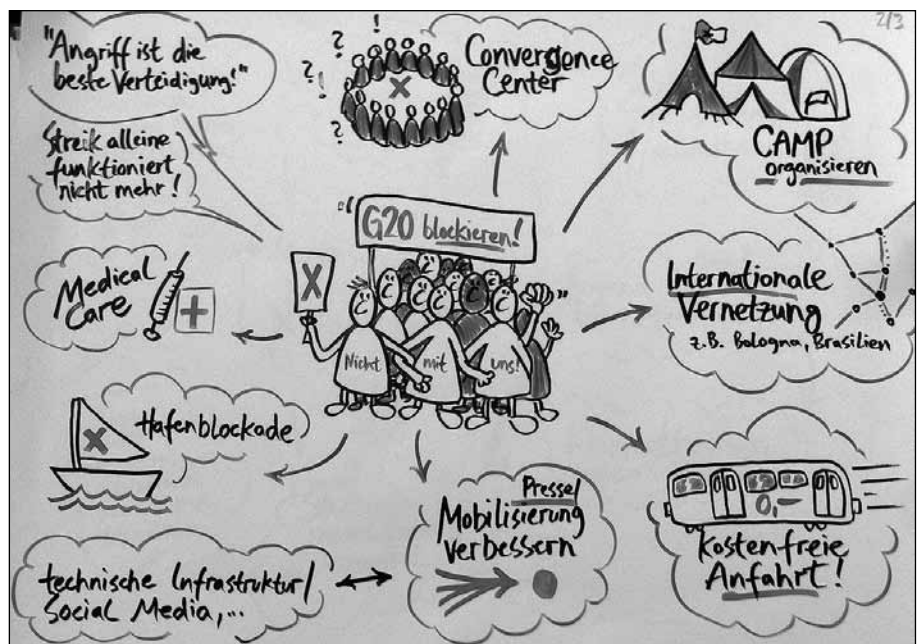 2/3
"Angriff ist die
beste Verteidigung!"
Streik alleine
funktioniert
nicht mehr!
? ! ? ! ?
X
Convergence
Center
CAMP
organisieren
"G20 blockieren!"
X
Nicht mit uns!
Medical
Care
+
Internationale
Vernetzung
z.B. Bologna, Brasilien
X
Hafenblockade
Presse/
Mobilisierung
verbessern
0,-
kostenfreie
Anfahrt!
technische Infrastruktur/
Social Media,...